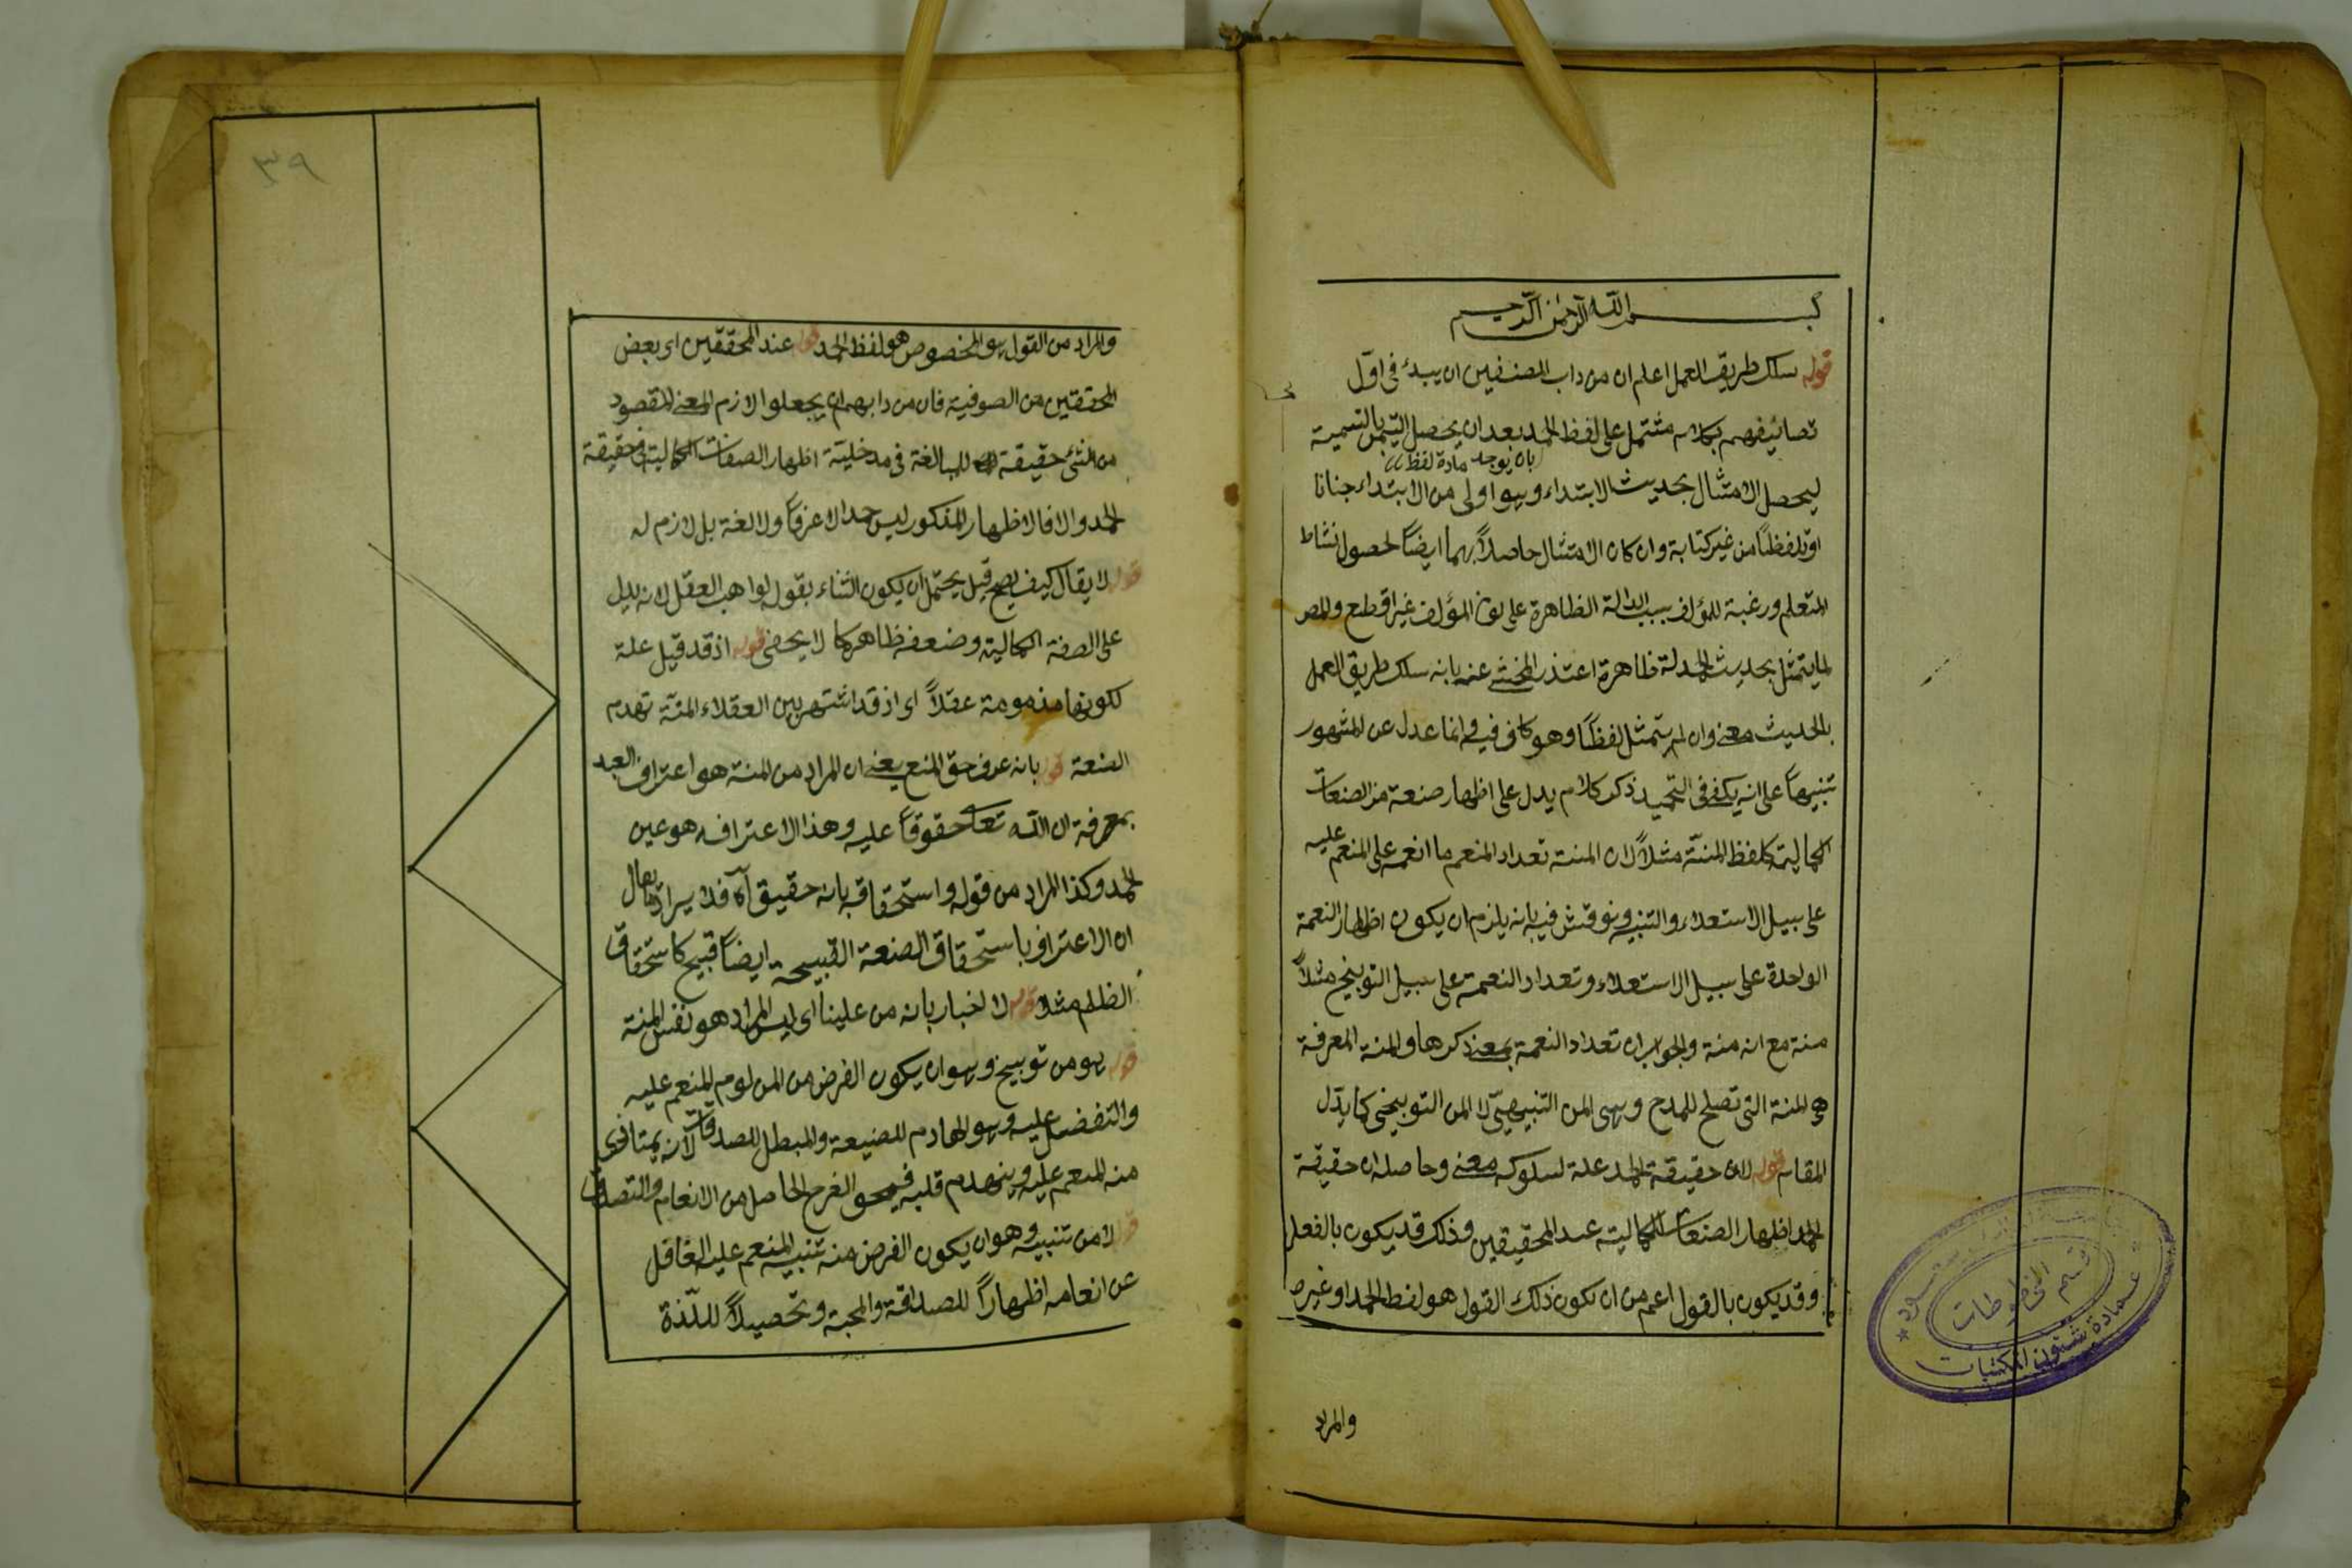 بسم الله الرحمن الرحيم
قوله سلك طريق العمل اعلم ان من داب المصنفين ان يبدئ في اول
تصانيفهم بكلام مشتمل على لفظ الحمد بعد ان يحصل التيمن بالتسمية
بان يوجد مادة لفظ
ليحصل الامتثال بحديث الابتداء وهو اولى من الابتداء جنانا
او تلفظا من غير كتابة وان كان الامتثال حاصلاً بهما ايضاً لحصول نشاط
المتعلم ورغبة للمؤلف بسبب الدالة الظاهرة على لون المؤلف غير اقطع والمص
لما يتمثل بحديث الحمدلة ظاهرة اعتذر المحشي عنه بانه سلك طريق العمل
بالحديث معنى وان لم يتمثل لفظاً وهو كاف فيه وانما عدل عن المشهور
تنبيهاً على انه يكفي في التحميد ذكر كلام يدل على اظهار صنعة من الصنعات
الكمالية كلفظ المنة مثلاً لان المنة تعداد المنعم ما انعمه على المنعم عليه
على سبيل الاستعلاء والتنبيه ونوقش فيه بانه يلزم ان يكون اظهار النعمة
الواحدة على سبيل الاستعلاء وتعداد النعمة على سبيل التوبيخ مثلاً
منة مع انه منة والجواب ان تعداد النعمة بمعنى ذكرها والمنة المعرفة
هي المنة التي تصلح للمدح وهي المن التنبيهي لا المن التوبيخي كما يدل
المقام قوله لان حقيقة الحمد علة لسلوكه معنى وحاصله ان حقيقة
الحمد اظهار الصنعات الكمالية عند المحقيقين وذلك قد يكون بالفعل
وقد يكون بالقول اعم من ان يكون ذلك القول هو لفظ الحمد او غيره
والمراد
عمادة شئون المكتبات
قسم المخطوطات
٣٩
والمراد من القول هو المخصوص هو لفظ الحمد قوله عند المحققين اى بعض
المحققين من الصوفية فان من دابهم ان يجعلوا لازم المعنى المقصود
من الشئ حقيقة للمبالغة في مدخلية اظهار الصفات الكمالية في حقيقة
الحمد والا فالاظهار المذكور ليس حمدا لا عرفاً ولا لغة بل لازم له
قوله لا يقال كيف يصح قيل يحتمل ان يكون الثناء بقوله لواهب العقل لانه يدل
على الصفة الكمالية وضعفه ظاهر كما لا يخفى قوله اذ قد قيل علة
لكونها مذمومة عقلاً اى اذ قد اشتهر بين العقلاء المنة تهدم
الصنعة قوله بانه عرف حق المنعم يعنى ان المراد من المنة هو اعتراف العبد
بمعرفة ان الله تعالى حقوقاً عليه وهذا الاعتراف هو عين
الحمد وكذا المراد من قوله واستحقاقه بانه حقيق آه فلا يراد ما يقال
ان الاعتراف باستحقاق الصنعة القبيحة ايضاً قبيح كاستحقاق
الظلم مثلا قوله لا اخبار بانه من علينا اى ليس المراد هو نفس المنة
قوله هو من توبيخ وهو ان يكون الغرض من المن لوم المنعم عليه
والتفضل عليه وهو الهادم للصنيعة والمبطل للصدقات لانه يمتاذى
منه المنعم عليه وينهدم قلبه فيمحو الفرح الحاصل من الانعام والتصدق
قوله لا من تنبيه وهو ان يكون الغرض منه تنبيه المنعم عليه الغافل
عن انعامه اظهاراً للصداقة والمحبة وتحصيلاً لللذة